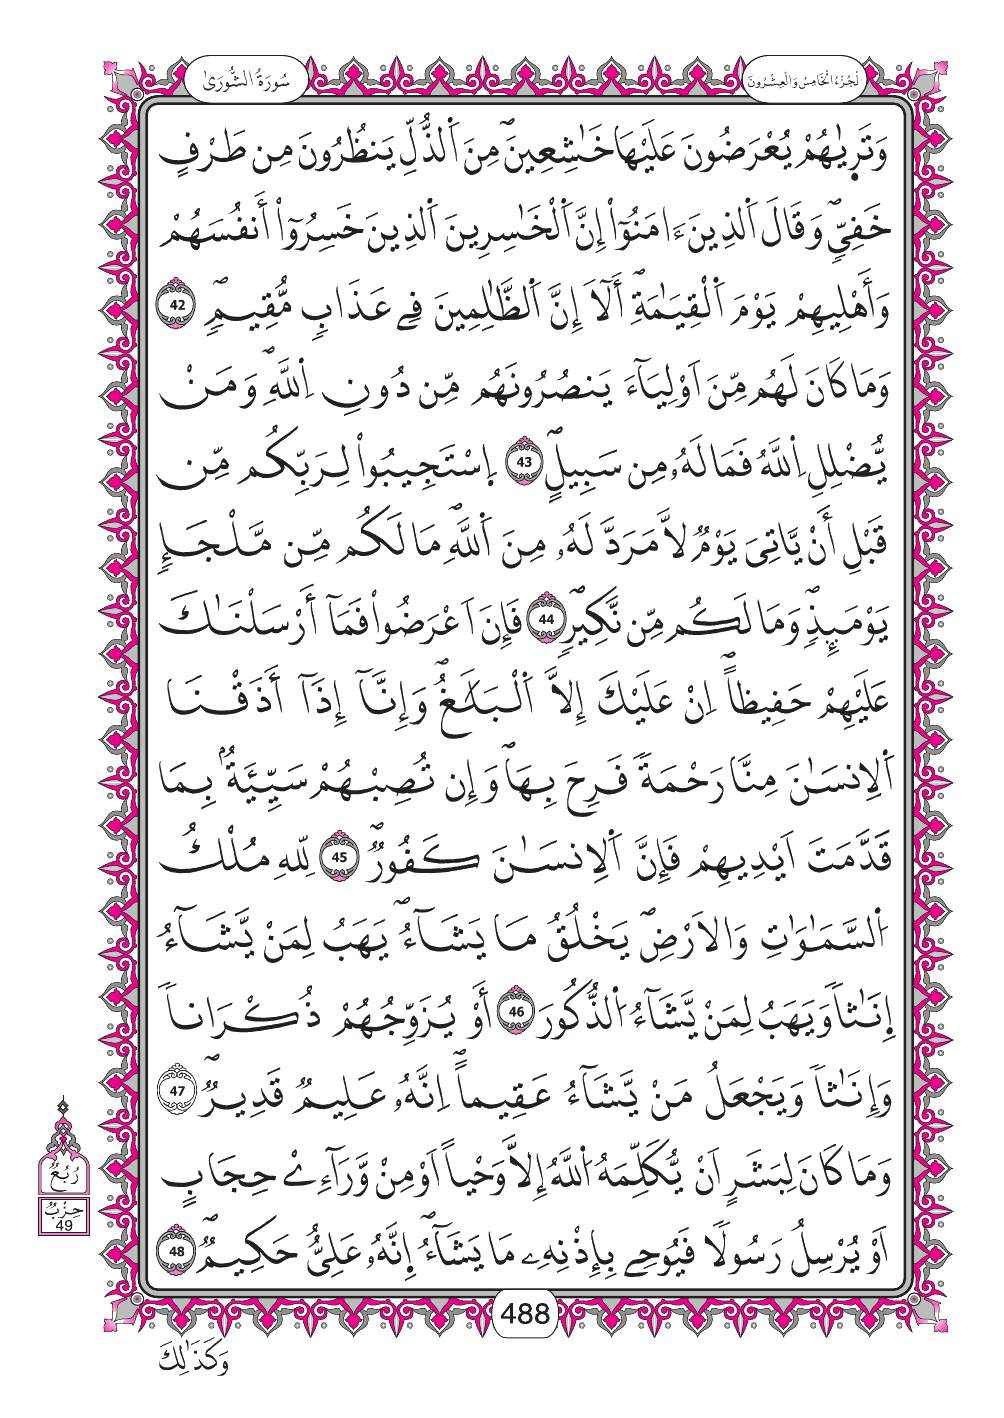 سُورَةُ الشُّورَىٰ
اَلْجُزْءُ الْخَامِسُ وَالْعِشْرُونَ
وَتَرٜىٰهُمْ يُعْرَضُونَ عَلَيْهَا خَٰشِعِينَۖ مِنَ اَ۬لذُّلِّ يَنظُرُونَ مِن طَرْفٍ
خَفِيّٖۖ وَقَالَ اَ۬لذِينَ ءَامَنُوٓاْ إِنَّ اَ۬لْخَٰسِرِينَ اَ۬لذِينَ خَسِرُوٓاْ أَنفُسَهُمْ
وَأَهْلِيهِمْ يَوْمَ اَ۬لْقِيَٰمَةِۖ أَلَآ إِنَّ اَ۬لظَّٰلِمِينَ فِے عَذَابٖ مُّقِيمٖۖ 42
وَمَا كَانَ لَهُم مِّنَ اَوْلِيَآءَ يَنصُرُونَهُم مِّن دُونِ اِ۬للَّهِۖ وَمَنْ
يُّضْلِلِ اِ۬للَّهُ فَمَا لَهُۥ مِن سَبِيلٍۖ 43 اِ۪سْتَجِيبُواْ لِرَبِّكُم مِّن
قَبْلِ أَنْ يَّاتِيَ يَوْمٞ لَّا مَرَدَّ لَهُۥ مِنَ اَ۬للَّهِۖ مَا لَكُم مِّن مَّلْجَإٖ
يَوْمَئِذٖۖ وَمَا لَكُم مِّن نَّكِيرٖۖ 44 فَإِنَ اَعْرَضُواْ فَمَآ أَرْسَلْنَٰكَ
عَلَيْهِمْ حَفِيظاًۖ اِنْ عَلَيْكَ إِلَّا اَ۬لْبَلَٰغُۖ وَإِنَّآ إِذَآ أَذَقْنَا
اَ۬لِانسَٰنَ مِنَّا رَحْمَةٗ فَرِحَ بِهَاۖ وَإِن تُصِبْهُمْ سَيِّئَةُۢ بِمَا
قَدَّمَتَ اَيْدِيهِمْ فَإِنَّ اَ۬لِانسَٰنَ كَفُورٞۖ 45 لِلهِ مُلْكُ
اُ۬لسَّمَٰوَٰتِ وَالَارْضِۖ يَخْلُقُ مَا يَشَآءُۖ يَهَبُ لِمَنْ يَّشَآءُ
إِنَٰثاٗ وَيَهَبُ لِمَنْ يَّشَآءُ اُ۬لذُّكُورَ 46 أَوْ يُزَوِّجُهُمْ ذُكْرَاناٗ
وَإِنَٰثاٗ وَيَجْعَلُ مَنْ يَّشَآءُ عَقِيماًۖ اِنَّهُۥ عَلِيمٞ قَدِيرٞۖ 47
وَمَا كَانَ لِبَشَرٍ اَنْ يُّكَلِّمَهُ اُ۬للَّهُ إِلَّا وَحْياً اَوْ مِنْ وَّرَآءِےْ حِجَابٍ
اَوْ يُرْسِلُ رَسُولاٗ فَيُوحِے بِإِذْنِهِۦ مَا يَشَآءُۖ إِنَّهُۥ عَلِيٌّ حَكِيمٞۖ 48
رُبُعُ
حِزْبُ
49
488
وَكَذَٰلِكَ